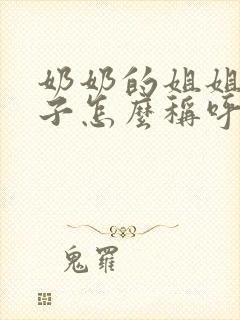 奶奶的姐姐
子怎麼稱呼
鬼羅